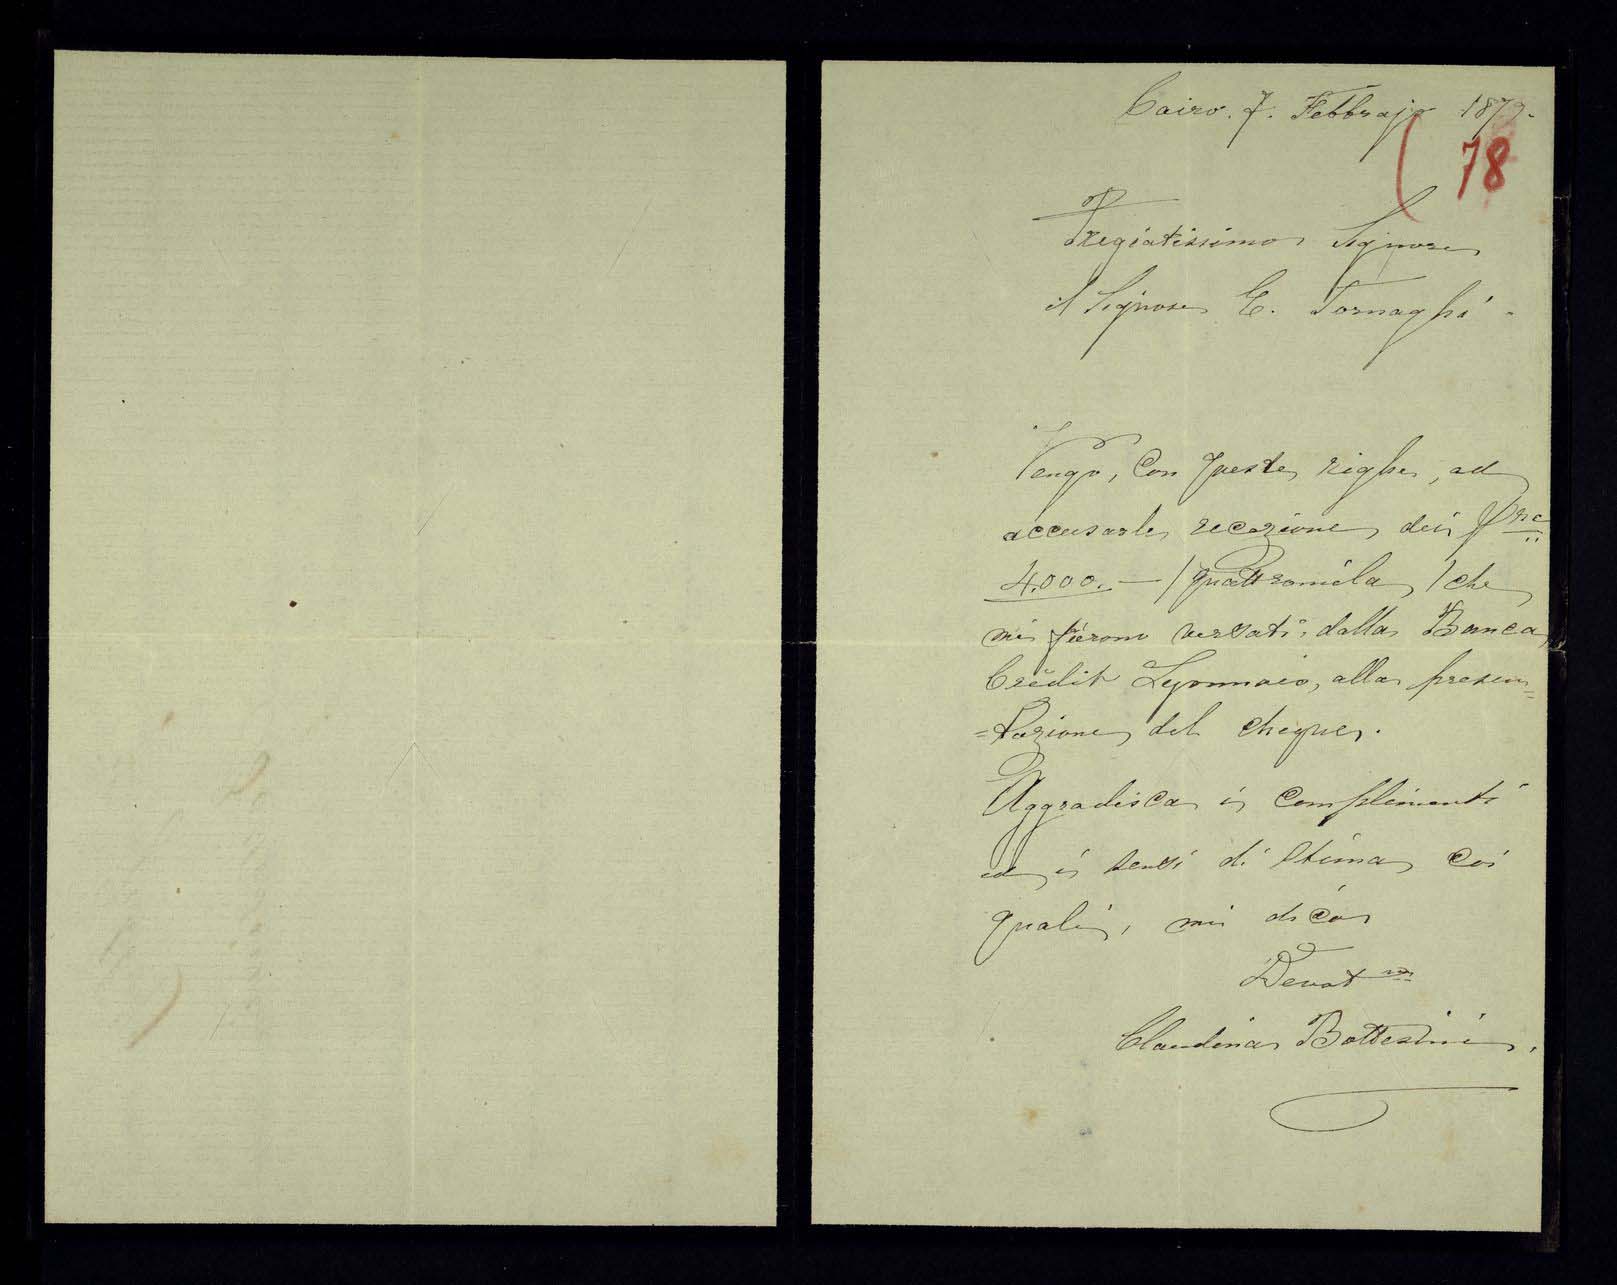 Cairo. 7. Febbrajo 1879.
78
Pregiatissimo Signore
il Signore E. Tornaghi.
Vengo, Con queste righe, ad
accusarle recezione dei frc
4.000. — / quattromila / che
mi furono versati dalla Banca
Crédit Lyonnais, alla presen=
=tazione del cheque.
Aggradisca i complimenti
ed i sensi di stima coi
quali, mi dico
Devotma
Claudina Bottesini.